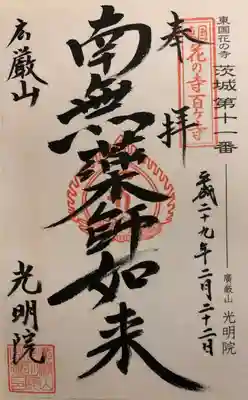 東国花の寺
茨城第十一番
廣厳山 光明院
花の寺百ヶ寺
奉拝
平成二十九年二月二十二日
南無薬師如来
広厳山
光明院